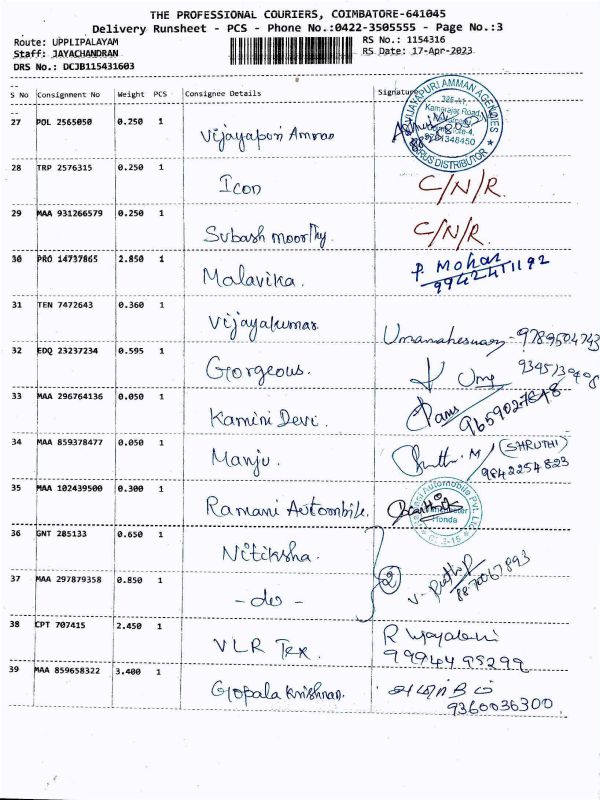 THE PROFESSIONAL COURIERS, COIMBATORE-641045
Delivery Runsheet - PCS - Phone No.:0422-3505555 - Page No.:3
Route: UPPLIPALAYAM
RS No.: 1154316
Staff: JAYACHANDRAN
RS Date: 17-Apr-2023
DRS No.: DCJB115431603
S No Consignment No Weight PCS Consignee Details Signature
VIJAYAPURI AMMAN AGENCIES
Kamarajar Road
27 POL 2565050 0.250 1 Vijayapuri Amman
28 TRP 2576315 0.250 1 Icon C/N/R.
29 MAA 931266579 0.250 1 Subash moorthy. C/N/R.
30 PRO 14737865 2.850 1 Malavika. P. Mohan
9942411192
31 TEN 7472643 0.360 1 Vijayakumar Umamaheswary - 9789504743
32 EDQ 23237234 0.595 1 Gorgeous. Uma
33 MAA 296764136 0.050 1 Kamini Devi.
9659027848
34 MAA 859378477 0.050 1 Manju. Shruthi. M (SHRUTHI)
9842254823
35 MAA 102439500 0.300 1 Ramani Automobile. Karthik
Automobile Pvt. Ltd
Honda
36 GNT 285133 0.650 1 Nitiksha.
2
37 MAA 297879358 0.850 1 - do -
8870067893
38 CPT 707415 2.450 1 VLR Tex. R
9994495299
39 MAA 859658322 3.400 1 Gopala Krishnan.
9360036300.